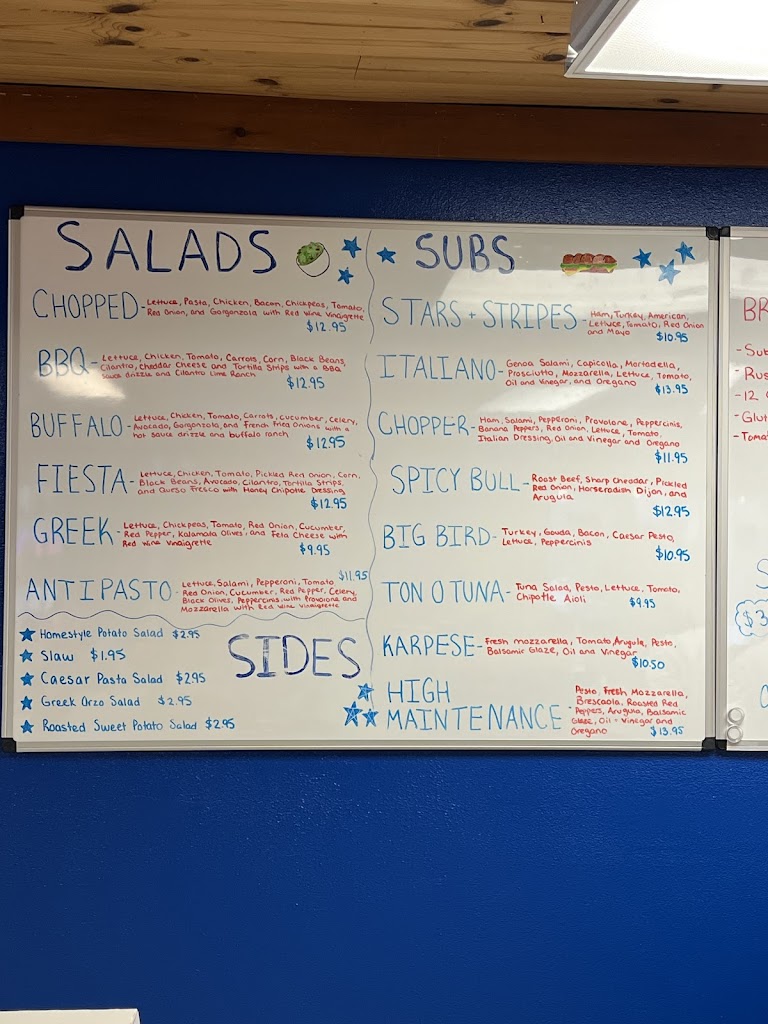 SALADS
CHOPPED - Lettuce, Pasta, Chicken, Bacon, Chickpeas, Tomato,
Red Onion, and Gorgonzola with Red Wine Vinaigrette
$12.95
BBQ - Lettuce, Chicken, Tomato, Carrots, Corn, Black Beans,
Cilantro, Cheddar Cheese and Tortilla Strips with a BBQ
Sauce drizzle and Cilantro Lime Ranch
$12.95
BUFFALO - Lettuce, Chicken, Tomato, Carrots, Cucumber, Celery,
Avocado, Gorgonzola, and French Fried Onions with a
hot sauce drizzle and buffalo ranch
$12.95
FIESTA - Lettuce, Chicken, Tomato, Pickled Red Onion, Corn,
Black Beans, Avocado, Cilantro, Tortilla Strips,
and Queso Fresco with Honey Chipotle Dressing
$12.95
GREEK - Lettuce, Chickpeas, Tomato, Red Onion, Cucumber,
Red Pepper, Kalamata Olives, and Feta Cheese with
Red Wine Vinaigrette
$9.95
ANTIPASTO - Lettuce, Salami, Pepperoni, Tomato $11.95
Red Onion, Cucumber, Red Pepper, Celery,
Black Olives, Peppercinis with Provolone and
Mozzarella with Red Wine Vinaigrette
SIDES
Homestyle Potato Salad $2.95
Slaw $1.95
Caesar Pasta Salad $2.95
Greek Orzo Salad $2.95
Roasted Sweet Potato Salad $2.95
SUBS
STARS + STRIPES - Ham, Turkey, American,
Lettuce, Tomato, Red Onion
and Mayo
$10.95
ITALIANO - Genoa Salami, Capicolla, Mortadella,
Prosciutto, Mozzarella, Lettuce, Tomato,
Oil and Vinegar, and Oregano
$13.95
CHOPPER - Ham, Salami, Pepperoni, Provolone, Peppercinis,
Banana Peppers, Red Onion, Lettuce, Tomato,
Italian Dressing, Oil and Vinegar and Oregano
$11.95
SPICY BULL - Roast Beef, Sharp Cheddar, Pickled
Red Onion, Horseradish Dijon, and
Arugula
$12.95
BIG BIRD - Turkey, Gouda, Bacon, Caesar Pesto,
Lettuce, Peppercinis
$10.95
TON O TUNA - Tuna Salad, Pesto, Lettuce, Tomato,
Chipotle Aioli
$9.95
KARPESE - Fresh mozzarella, Tomato, Arugula, Pesto,
Balsamic Glaze, Oil and Vinegar
$10.50
HIGH
MAINTENANCE - Pesto, Fresh Mozzarella,
Brescaola, Roasted Red
Peppers, Arugula, Balsamic
Glaze, Oil + Vinegar and
Oregano
$13.95
BR
- Sub
- Rus
- 12
- Glut
- Toma
$3